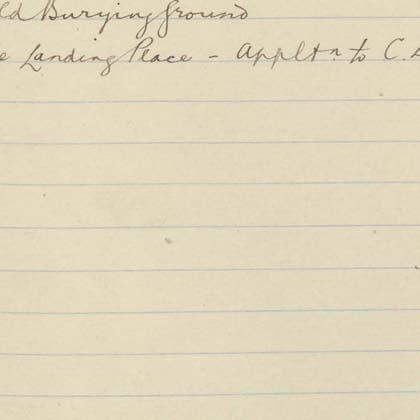 ld Burying Ground
e Landing Place - Applt.n to C.